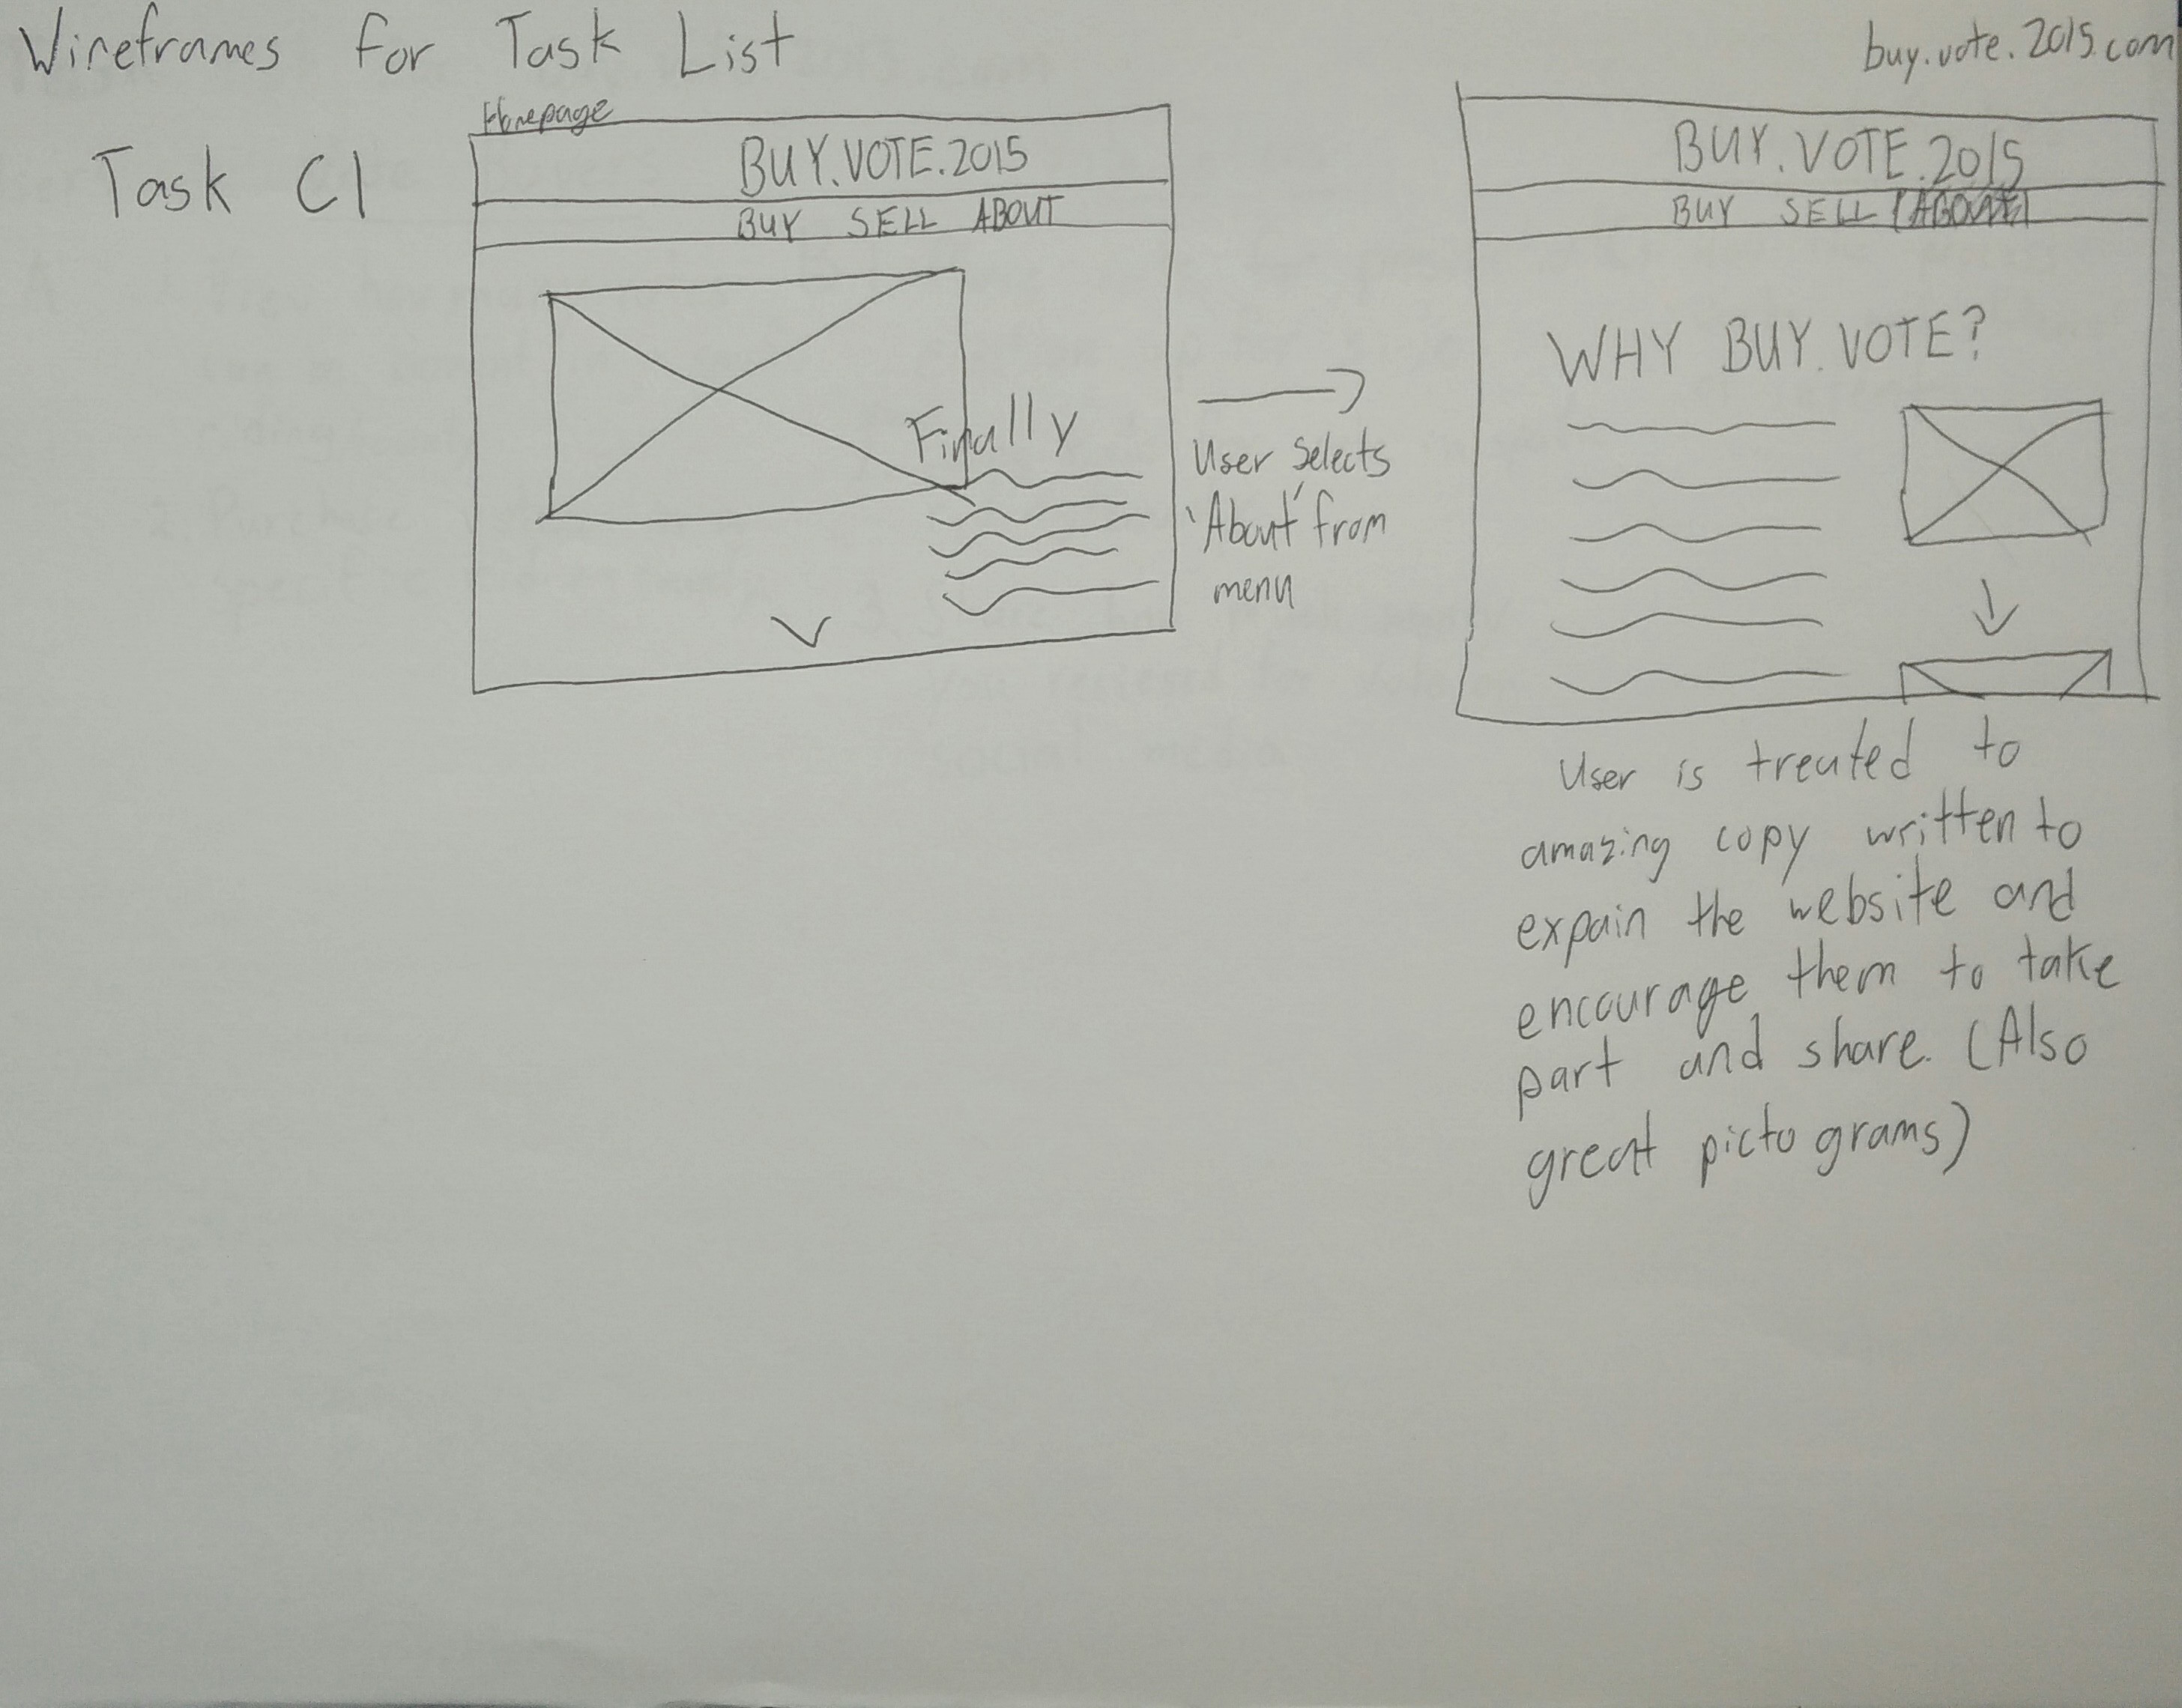 Wireframes for Task List
buy.vote.2015.com
Task C1
Homepage
BUY.VOTE.2015
BUY SELL ABOUT
Finally
User Selects
'About' from
menu
BUY.VOTE.2015
BUY SELL (ABOUT)
WHY BUY.VOTE?
User is treated to
amazing copy written to
expain the website and
encourage them to take
part and share. (Also
great pictograms)